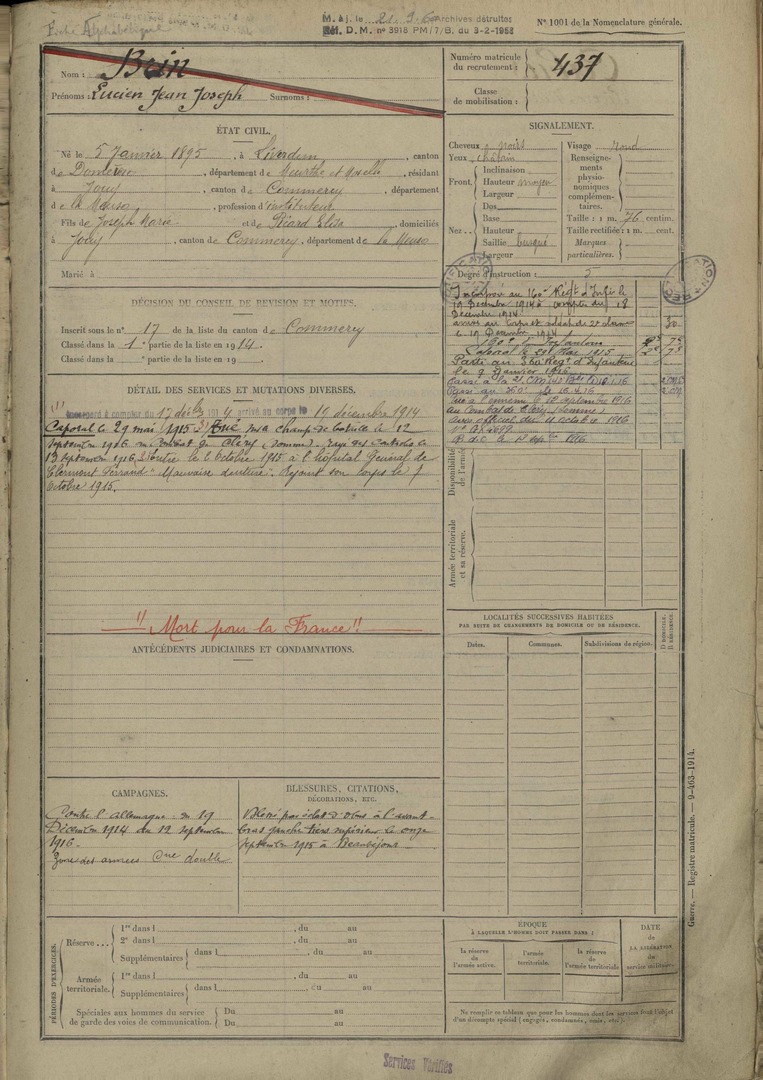 Fiche Alphabétique
M. à j. le 21.9.60 Archives détruites
Réf. D. M. n° 3918 PM/7/B. du 3-2-1958
N° 1001 de la Nomenclature générale.
Nom : Brin
Prénoms : Lucien Jean Joseph Surnoms :
Numéro matricule du recrutement : 437
Classe de mobilisation :
ÉTAT CIVIL.
Né le 5 Janvier 1895, à Liverdun, canton
de Domèvre, département de Meurthe et Moselle, résidant
à Jouy, canton de Commercy, département
de la Meuse, profession d'instituteur
Fils de Joseph Marie et de Picard Elisa, domiciliés
à Jouy, canton de Commercy, département de la Meuse
Marié à
SIGNALEMENT.
Cheveux noirs
Yeux châtain
Front. Inclinaison
Hauteur moyen
Largeur
Nez : Dos
Base
Hauteur
Saillie busqué
Largeur
Visage rond
Renseignements physionomiques complémentaires.
Taille : 1 m. 76 centim.
Taille rectifiée : 1 m. cent.
Marques particulières.
Degré d'instruction : 3
DÉCISION DU CONSEIL DE REVISION ET MOTIFS.
Inscrit sous le n° 17 de la liste du canton de Commercy
Classé dans la 1e partie de la liste en 1914.
Classé dans la e partie de la liste en 19
Incorporé au 160e Régt d'Infie le
19 Décembre 1914 à compter du 18
Décembre 1914
arrivé au corps et soldat de 2e classe
le 19 Décembre 1914
160e d'Infanterie
Caporal le 29 Mai 1915
Parti au 360e Régt d'Infanterie
le 9 Janvier 1916
Passé à la 21e
Passé au 360e le 16.4.16
Tué à l'ennemi le 12 septembre 1916
au Combat de Cléry (Somme)
avis officiel du 11 octobre 1916
DÉTAIL DES SERVICES ET MUTATIONS DIVERSES.
Incorporé à compter du 17 décbre 1914 arrivé au corps le 19 décembre 1914
Caporal le 29 mai 1915. Tué sur le champ de bataille le 12
septembre 1916 au combat de Cléry (Somme). Rayé des contrôles le
13 septembre 1916. Entré le 2 Octobre 1915 à l'hôpital Général de
Clermont Ferrand "Mauvaise denture". Rejoint son corps le 7
Octobre 1915.
"Mort pour la France"
Disponibilité de l'armée
Armée territoriale et sa réserve.
LOCALITÉS SUCCESSIVES HABITÉES
PAR SUITE DE CHANGEMENTS DE DOMICILE OU DE RÉSIDENCE.
Dates. Communes. Subdivisions de région. D DOMICILE. R RÉSIDENCE
ANTÉCÉDENTS JUDICIAIRES ET CONDAMNATIONS.
CAMPAGNES.
Contre l'allemagne : du 19
Décembre 1914 au 12 septembre
1916.
Zone des armées Cne double
BLESSURES, CITATIONS,
DÉCORATIONS, ETC.
Blessé par éclat d'obus à l'avant-
bras gauche tiers supérieur le onze
septembre 1915 à Beauséjour
PÉRIODES D'EXERCICES.
Réserve... 1re dans l , du au
2e dans l , du au
Supplémentaires dans l , du au
Armée territoriale. 1re dans l , du au
Supplémentaires dans l , du au
Spéciales aux hommes du service de garde des voies de communication. Du au
Du au
ÉPOQUE
À LAQUELLE L'HOMME DOIT PASSER DANS :
la réserve de l'armée active. l'armée territoriale. la réserve de l'armée territoriale
DATE de LA LIBÉRATION du service militaire.
Ne remplir ce tableau que pour les hommes dont les services font l'objet
d'un décompte spécial (engagés, condamnés, omis, etc.)
Guerre. — Registre matricule. — 9-463-1914.
Services Vérifiés